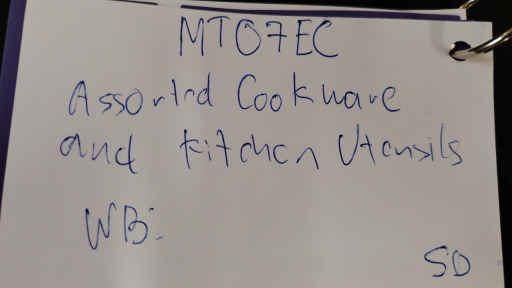 MT07EC
Assorted Cookware
and Kitchen Utensils
WB:
SD